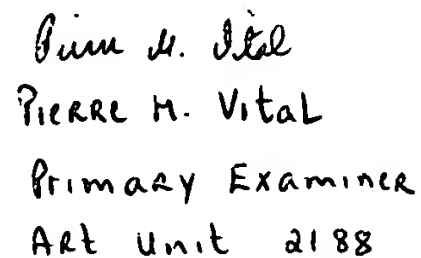 Pierre M. Vital
PIERRE M. VITAL
PRIMARY EXAMINER
ART UNIT 2188